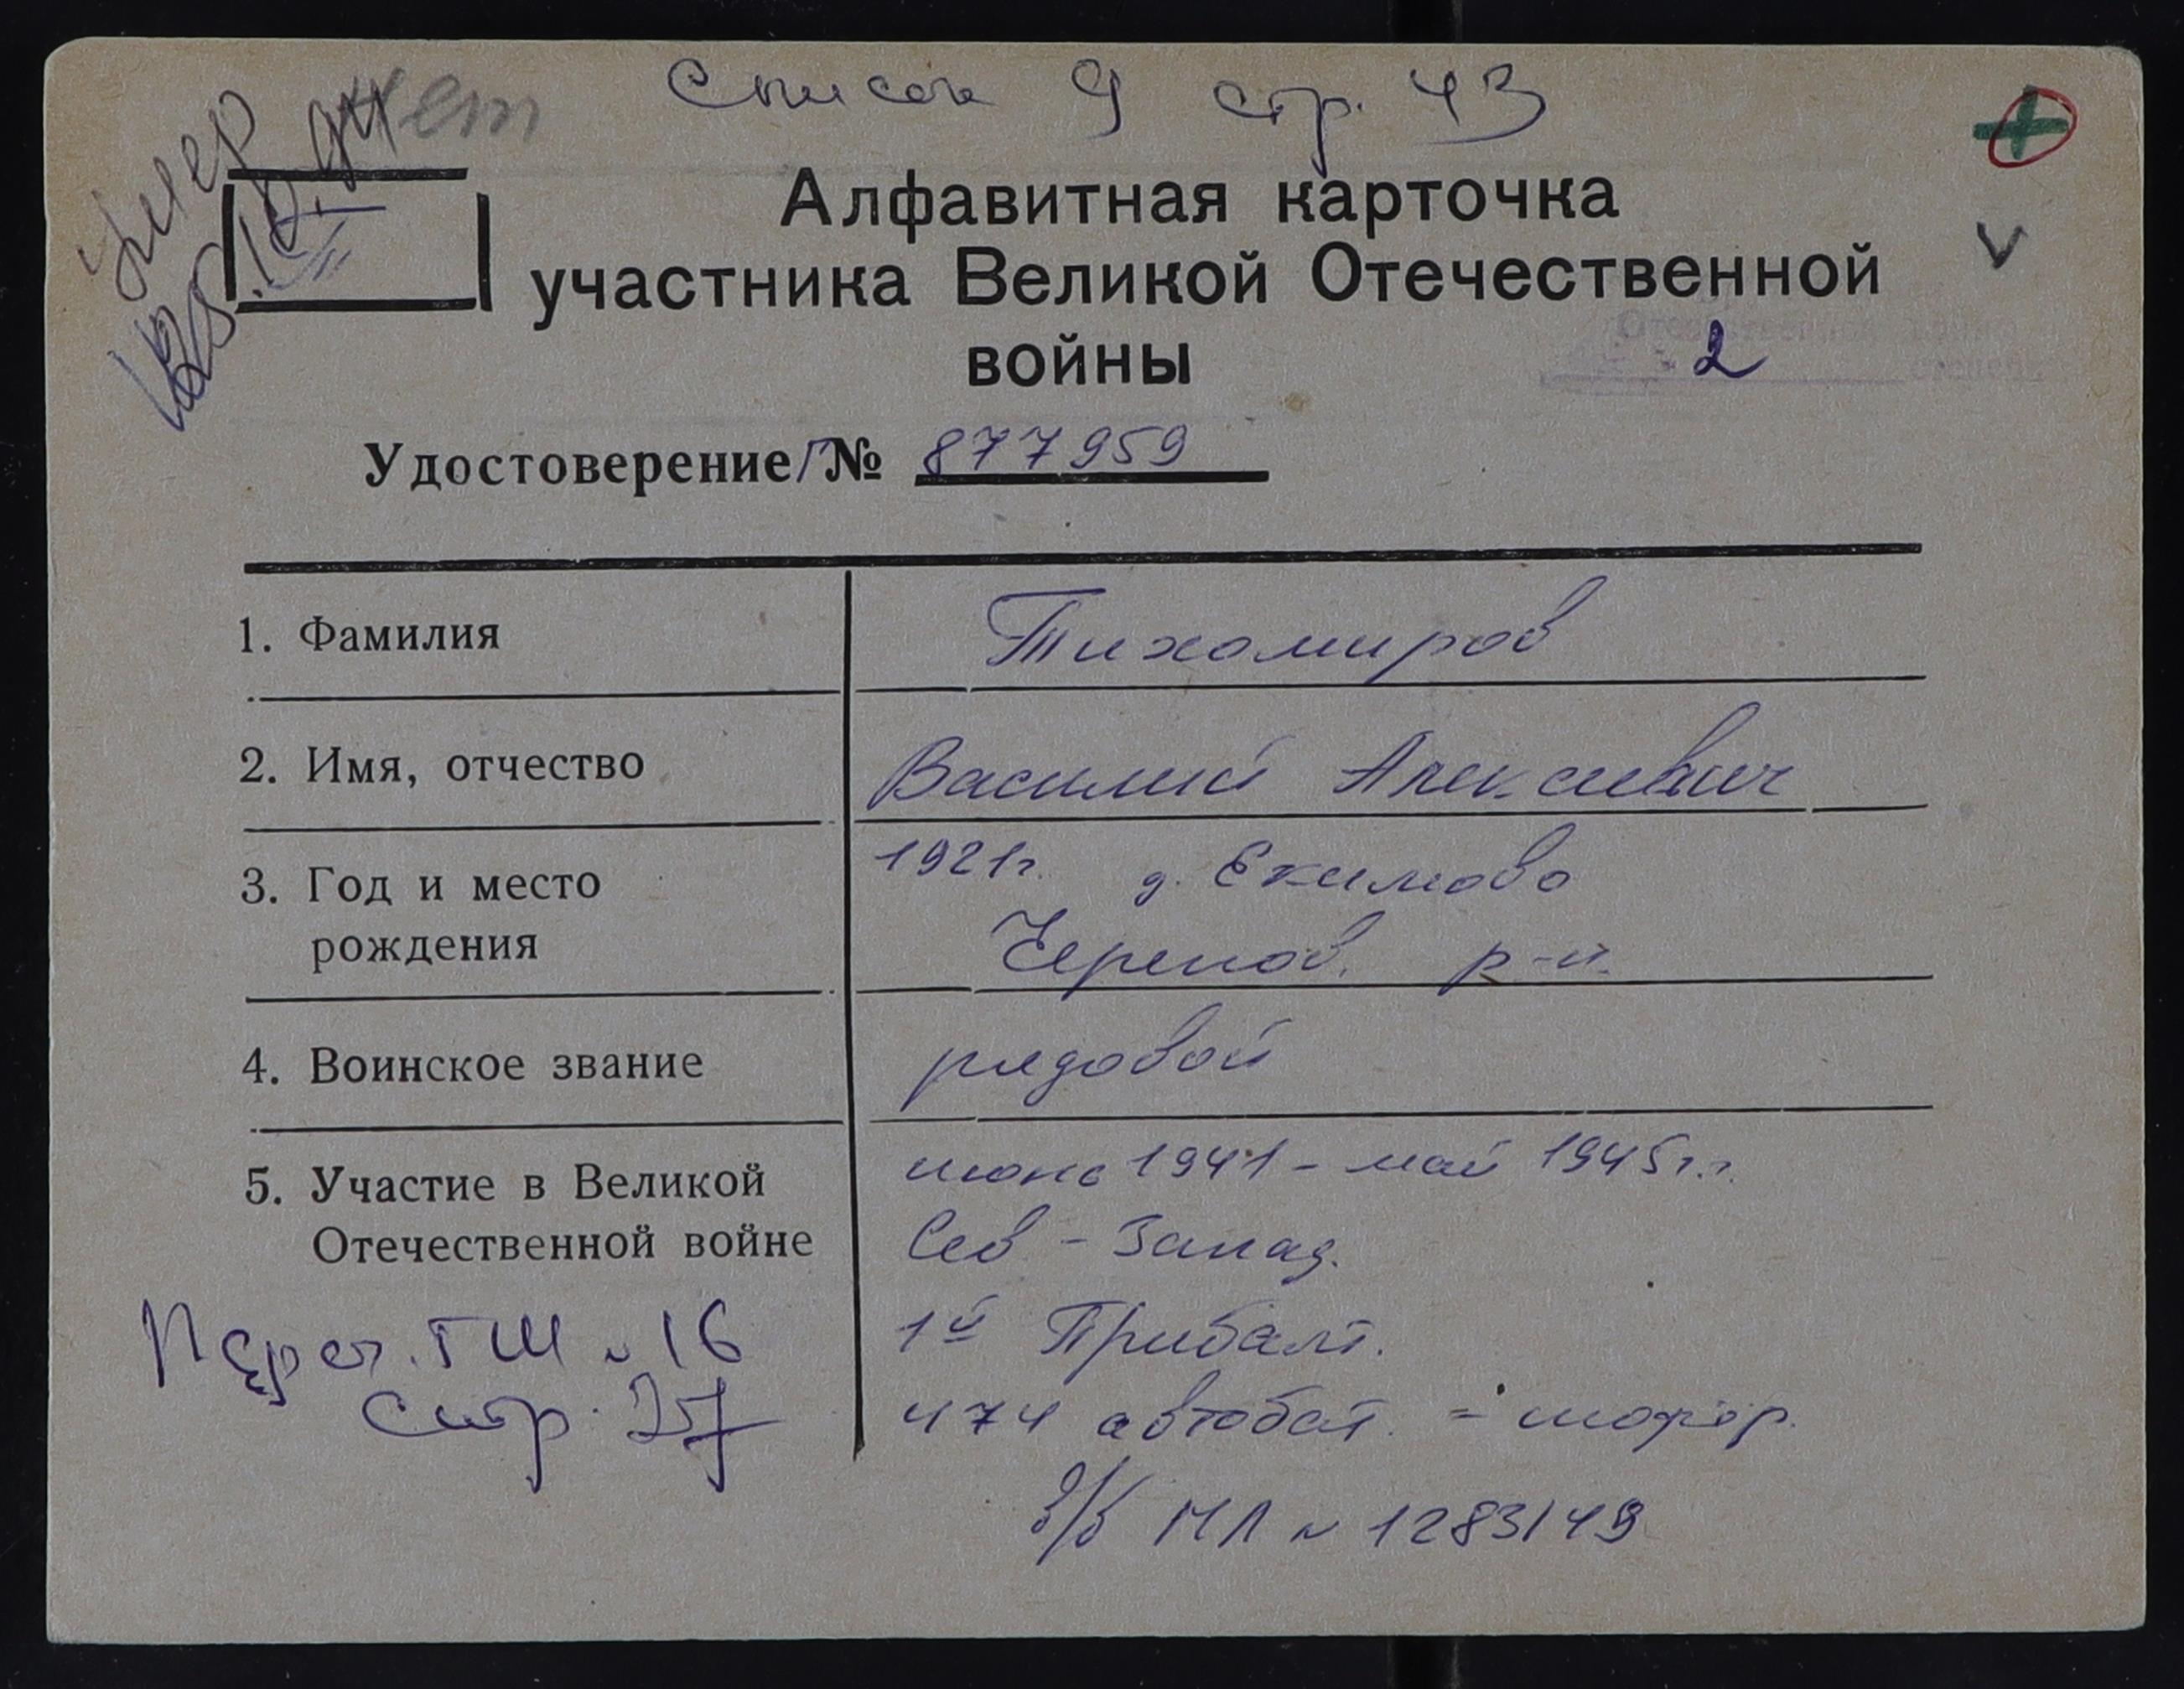 Список 9 стр. 43
нет
умер
Алфавитная карточка
участника Великой Отечественной
войны
Отечественная война
2 степени
Удостоверение Г№ 877959
1. Фамилия Тихомиров
2. Имя, отчество Василий Алексеевич
3. Год и место 1921г. д. Екимово
рождения Черепов. р-н.
4. Воинское звание рядовой
5. Участие в Великой июнь 1941 - май 1945г.г.
Отечественной войне Сев - Запад.
1й Прибалт.
474 автобат. - шофер.
в/б МЛ № 1283149
Переч. ГШ № 16
Стр. 27